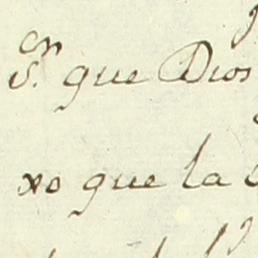 S.en que Dios
xo que la